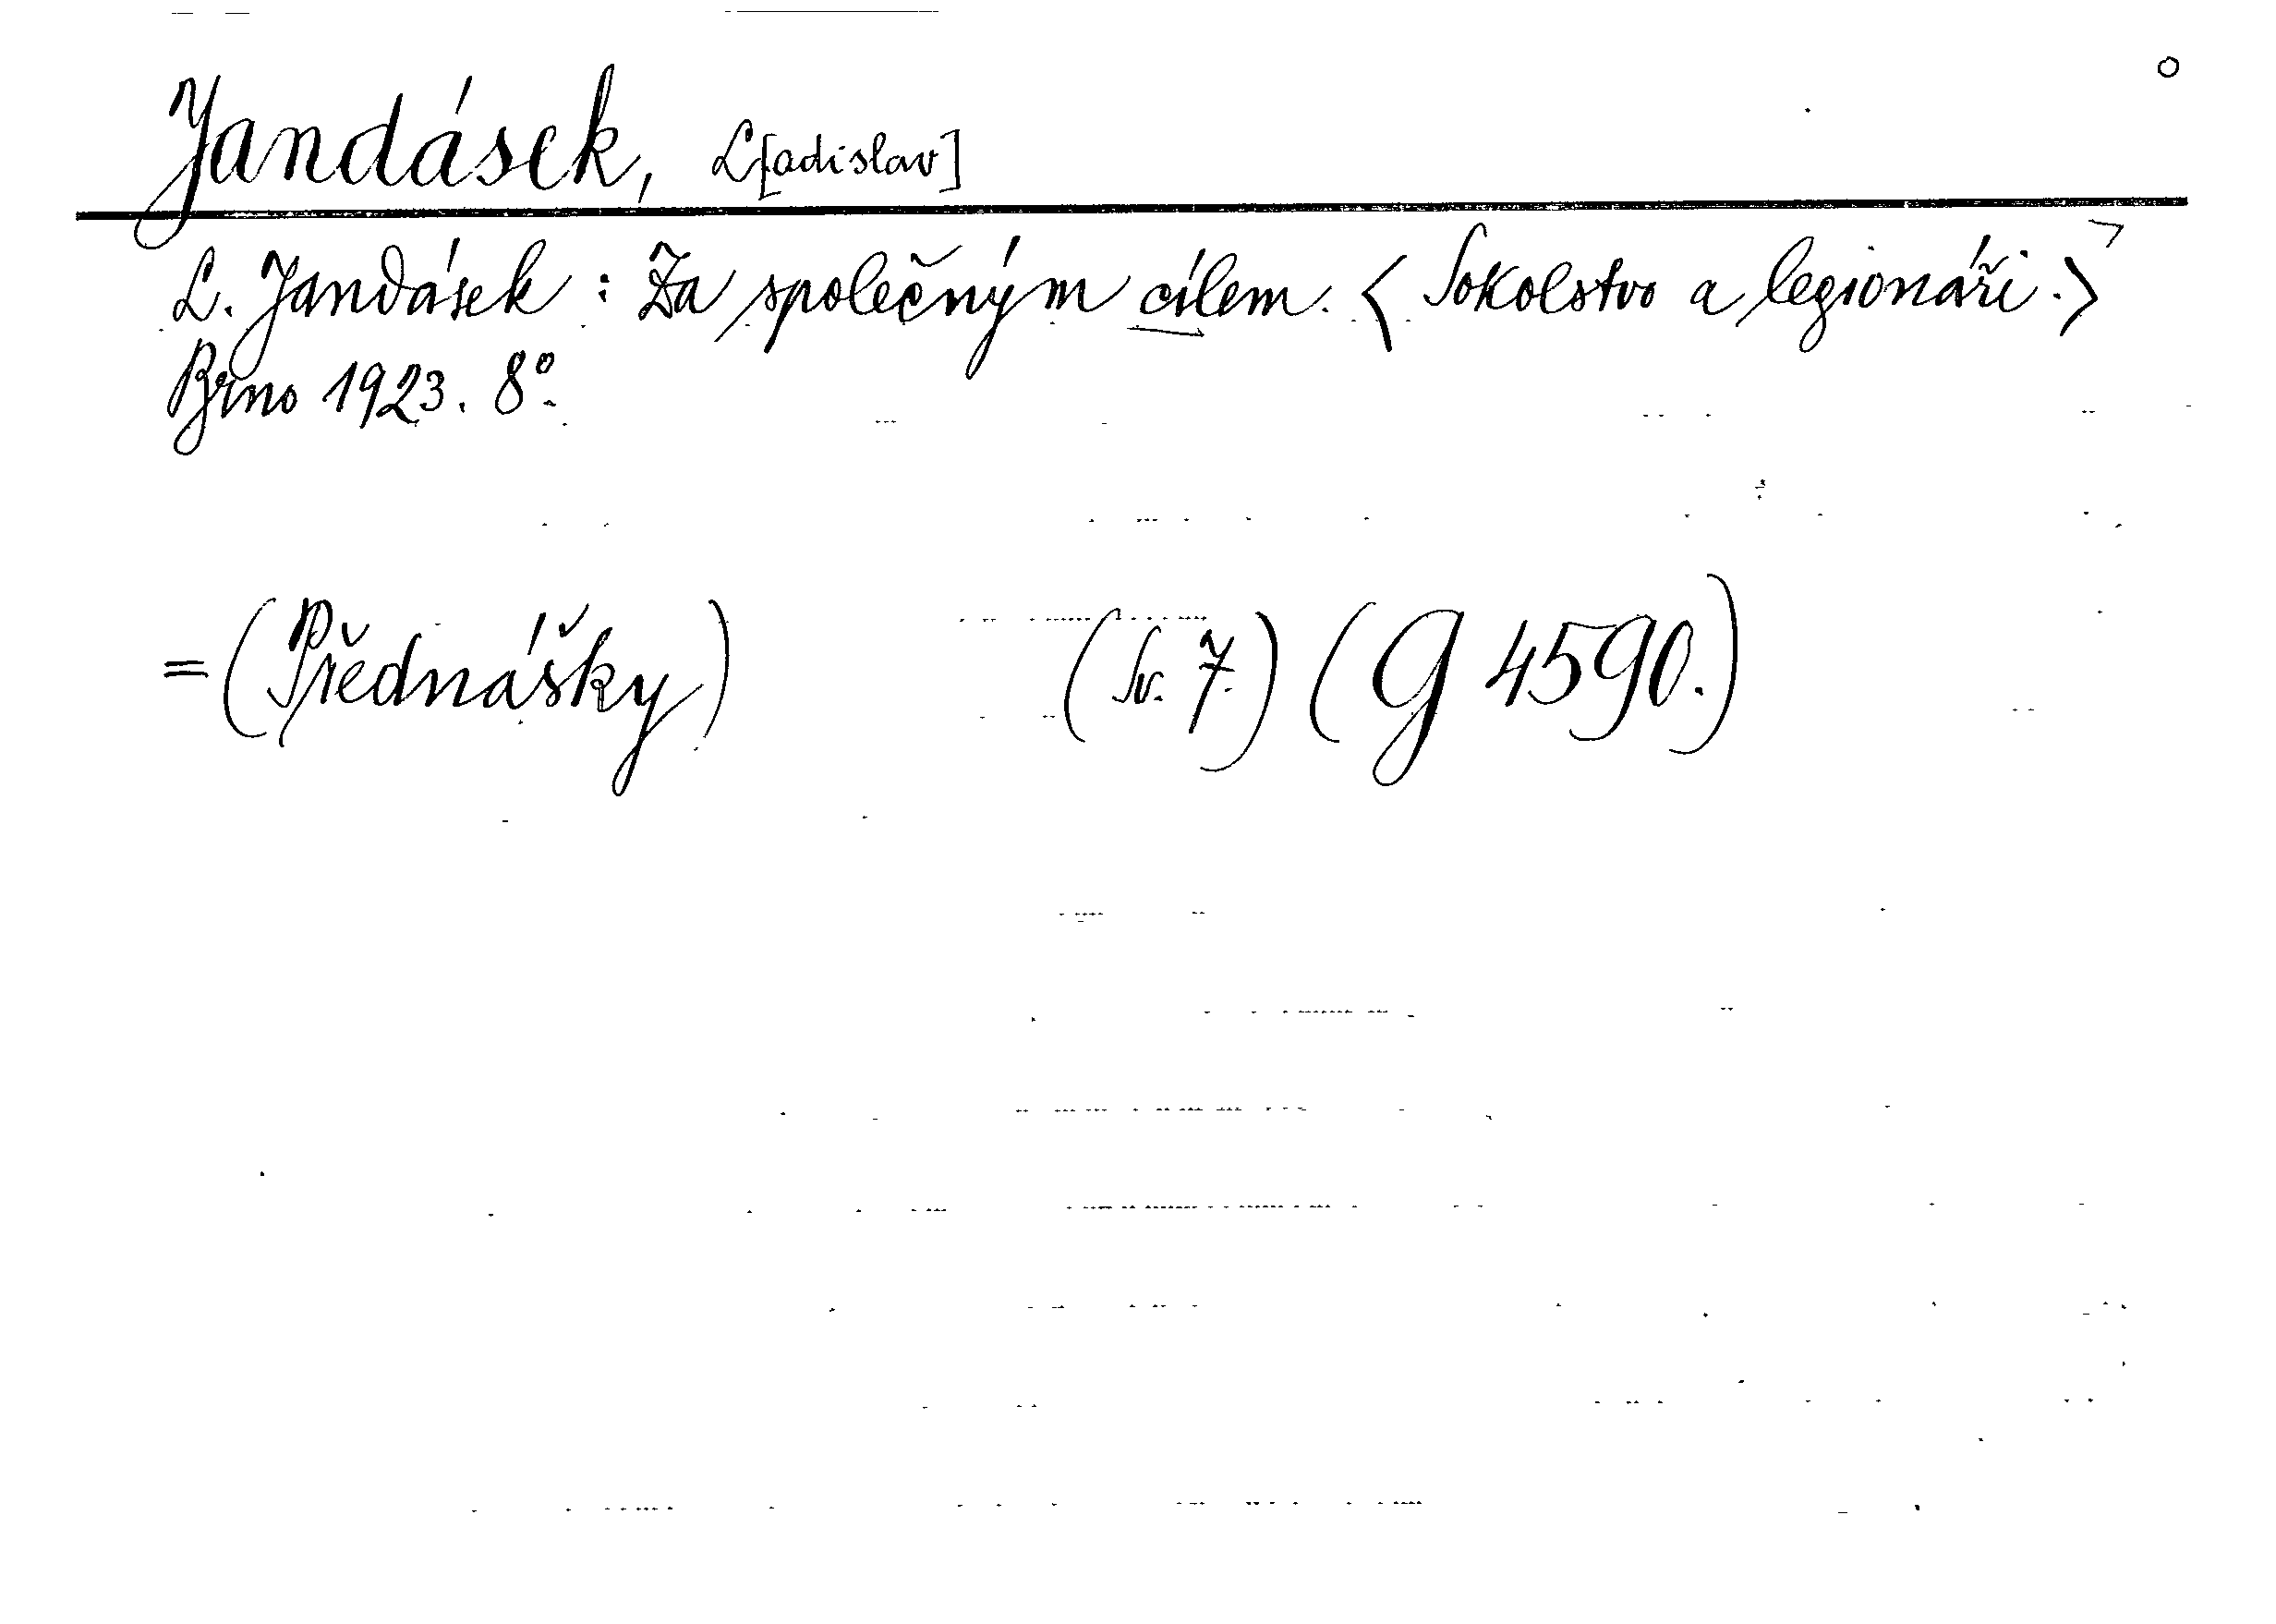 Jandásek, L[adislav]
L. Jandásek : Za společným cílem. < Sokolstvo a legionáři. >
Brno 1923. 8°.
= (Přednášky) (Sv. 7.) (G 4590.)